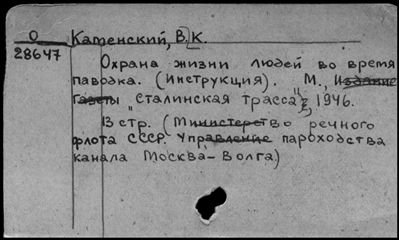 О
28647
Каменский, В. К.
Охрана жизни людей во время
паводка. (Инструкция). М., Издание
Газеты „Сталинская трасса", 1946.
13 стр. (Министерство речного
флота СССР. Управление пароходства
канала Москва-Волга)